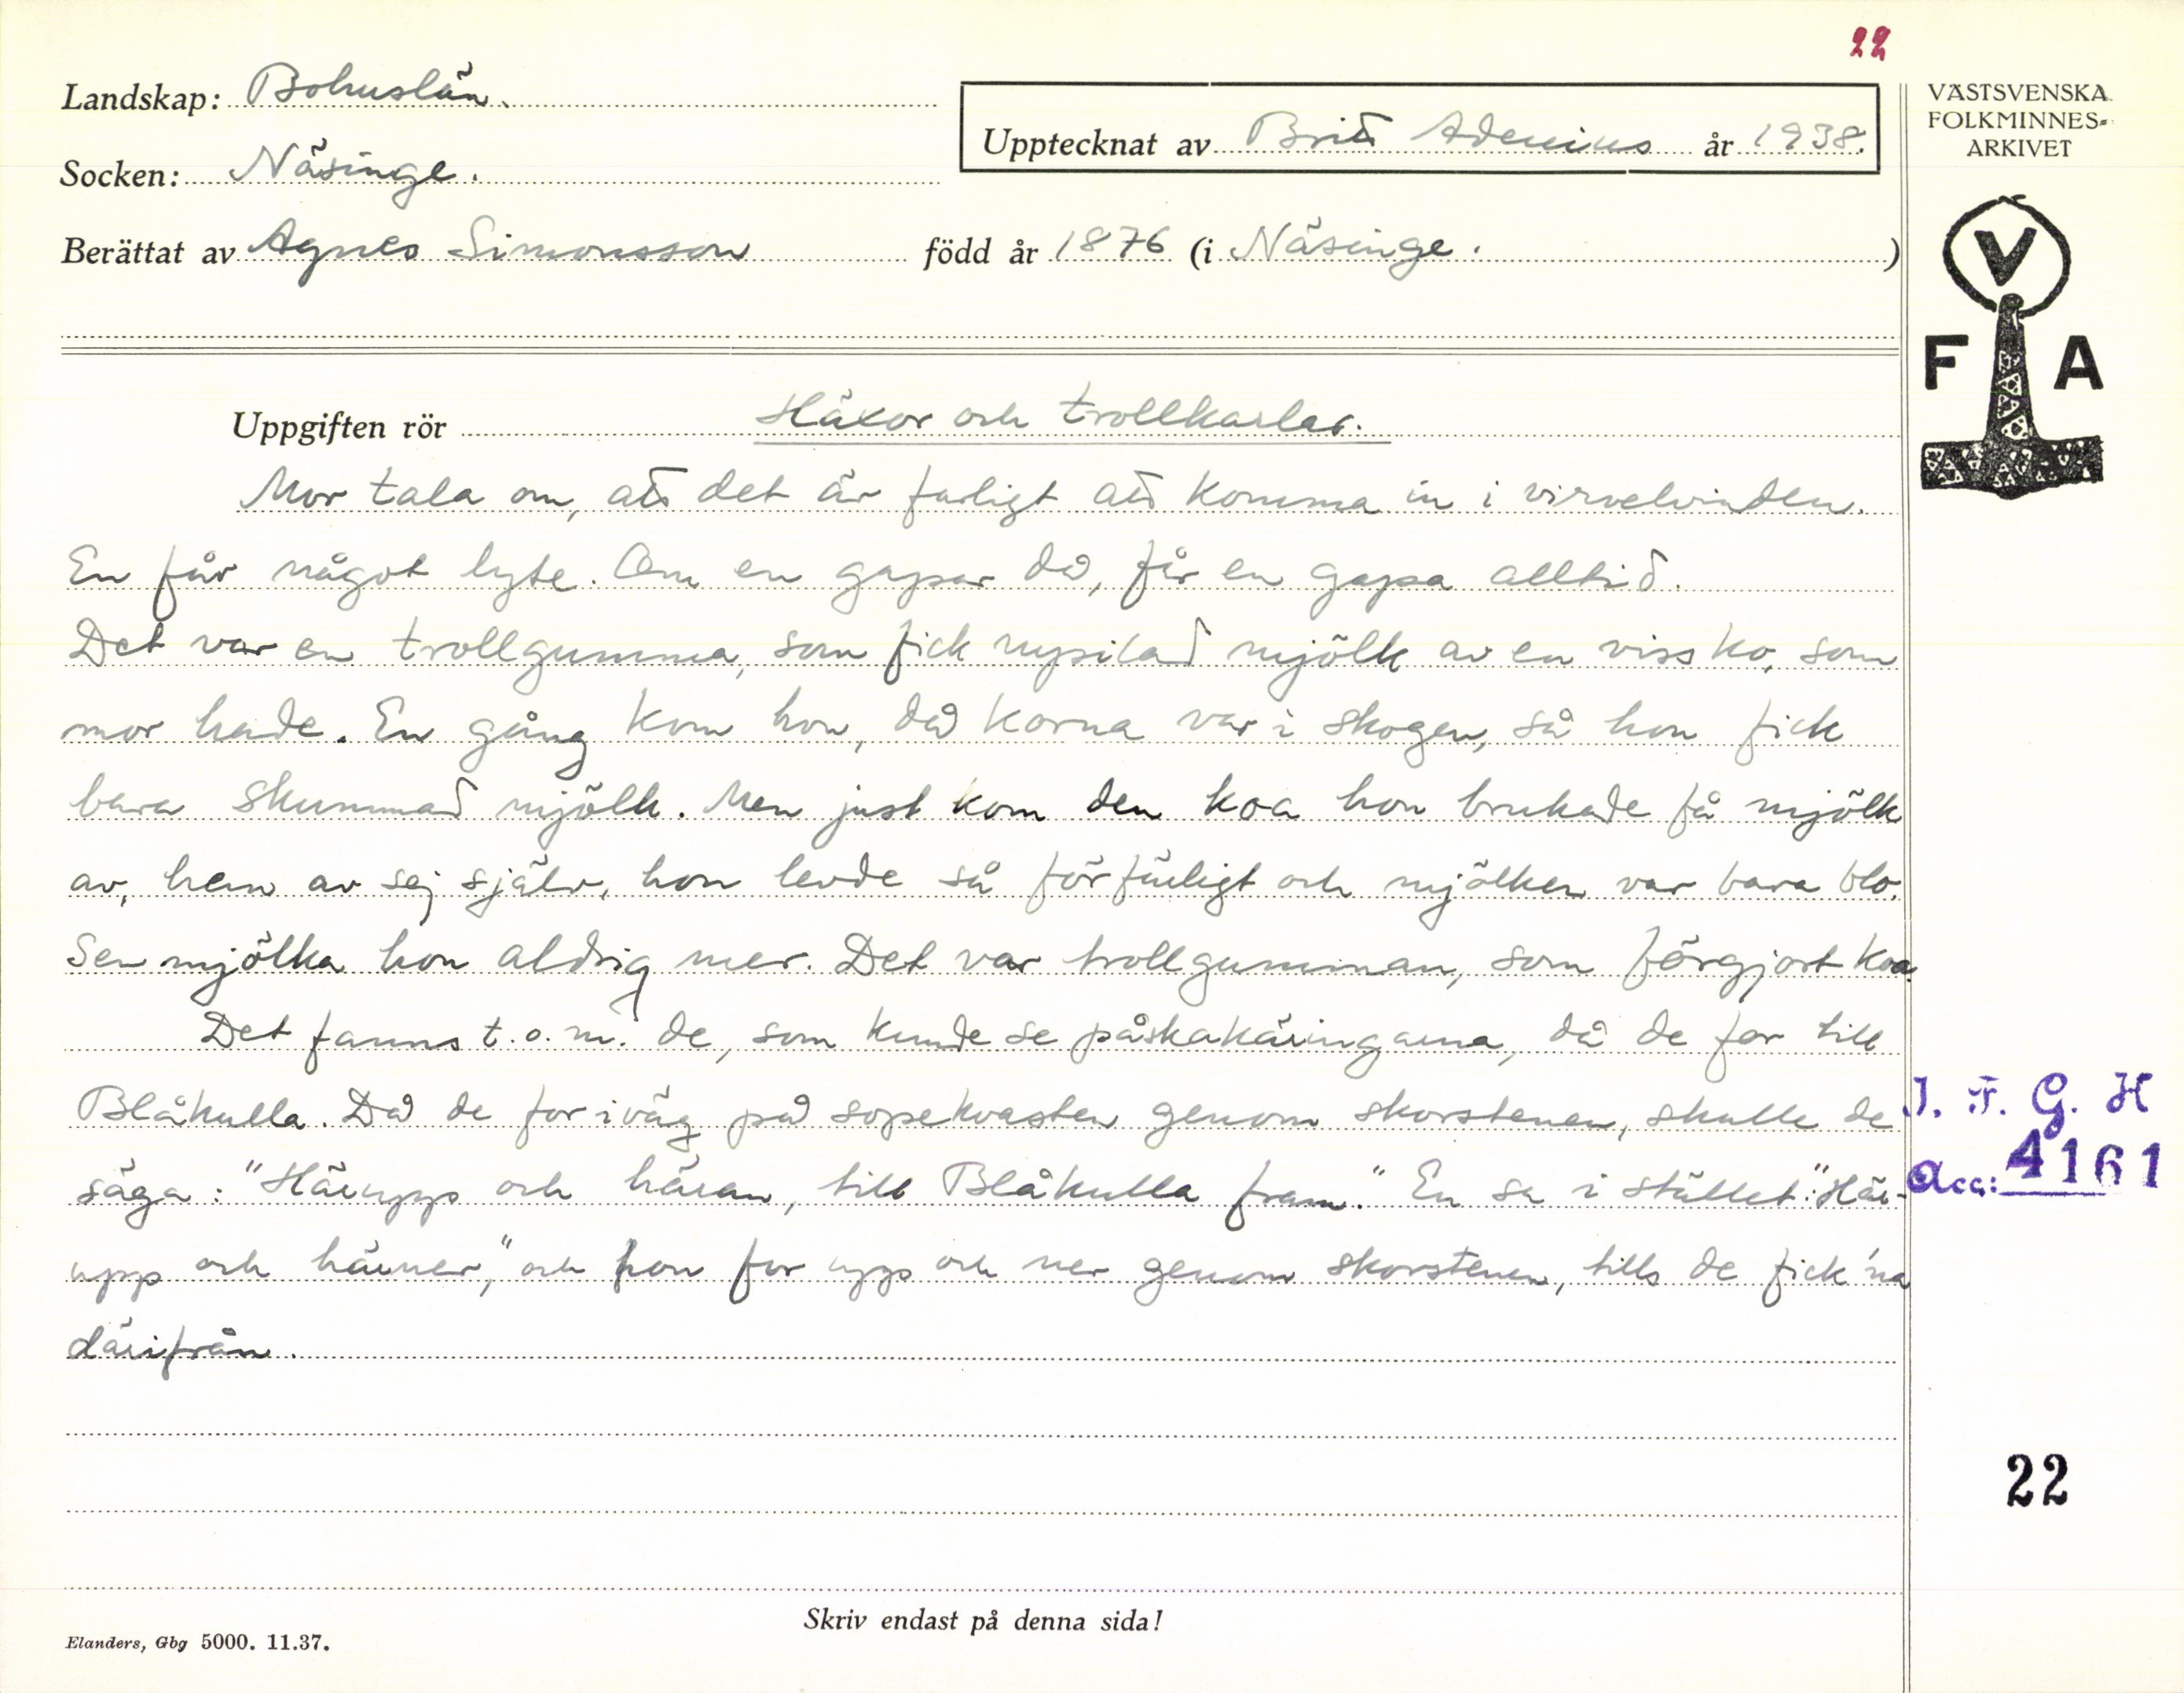 22
Landskap: Bohuslän.
Upptecknat av Brita Adenius år 1938.
VÄSTSVENSKA
FOLKMINNES-
ARKIVET
Socken: Näsinge.
Berättat av Agnes Simonsson född år 1876 (i Näsinge. )
V
F A
Uppgiften rör Häxor och trollkarlar.
Mor tala om, att det är farligt att komma in i virvelvinden.
En får något lyte. Om en gapar då, får en gapa alltid.
Det var en trollgumma, som fick nysilad mjölk av en viss ko, som
mor hade. En gång kom hon, då korna var i skogen, så hon fick
bara skummad mjölk. Men just kom den koa hon brukade få mjölk
av, hem av sej själv, hon levde så förfärligt och mjölken var bara blo.
Sen mjölka hon aldrig mer. Det var trollgumman, som förgjort koa.
Det fanns t.o.m. de, som kunde se påskakäringarna, då de for till
Blåkulla. Då de for iväg på sopekvasten genom skorstenen, skulle de
säga: "Härupp och häran, till Blåkulla fram." En sa i stället: "Här-
upp och härner," och hon for upp och ner genom skorstenen, tills de fick 'na
därifrån.
I. F. G. H
Acc: 4161
22
Skriv endast på denna sida!
Elanders, Gbg 5000. 11.37.